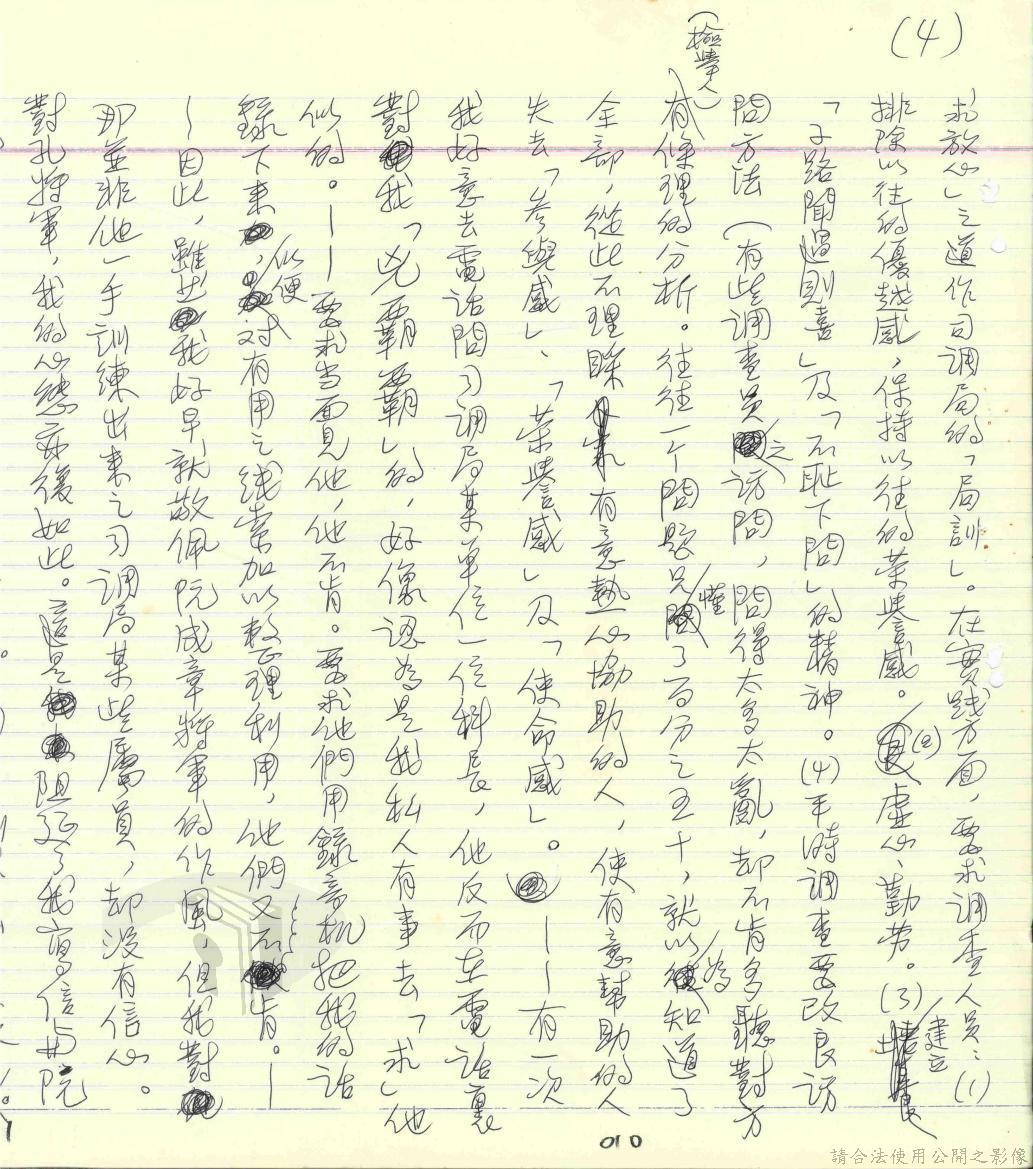 (4)
求放心」之道作司調局的「局訓」。在實践方面，要求調查人員：(1)
排除以往的優越感，保持以往的榮譽感。(2)虛心、勤劳。(3)建立
「子路聞過則喜」及「不恥下問」的精神。(4)平時調查要改良訪
問方法（有些調查員之訪問，問得太多太亂，却不肯多聽對方
（檢舉人）
有條理的分析。往往一个問題只懂了百分之五十，就以為知道了
全部，從此不理睬有意熱心協助的人，使有意幫助的人
失去「參與感」、「榮譽感」及「使命感」。——有一次
我好意去電話問司調局某單位一位科長，他反而在電話裏
對我「兇霸霸」的，好像認為是我私人有事去「求」他
似的。——要求当面見他，他不肯。要求他們用錄音机把我的話
錄下來，以便对有用之线索加以整理利用，他們又不肯。—
—因此，雖然我好早就敬佩阮成章將軍的作風，但我對
那並非他一手訓練出來之司調局某些屬員，却没有信心。
對孔將軍，我的心態亦復如此。這是阻延了我寫信與阮
010
請合法使用公開之影像